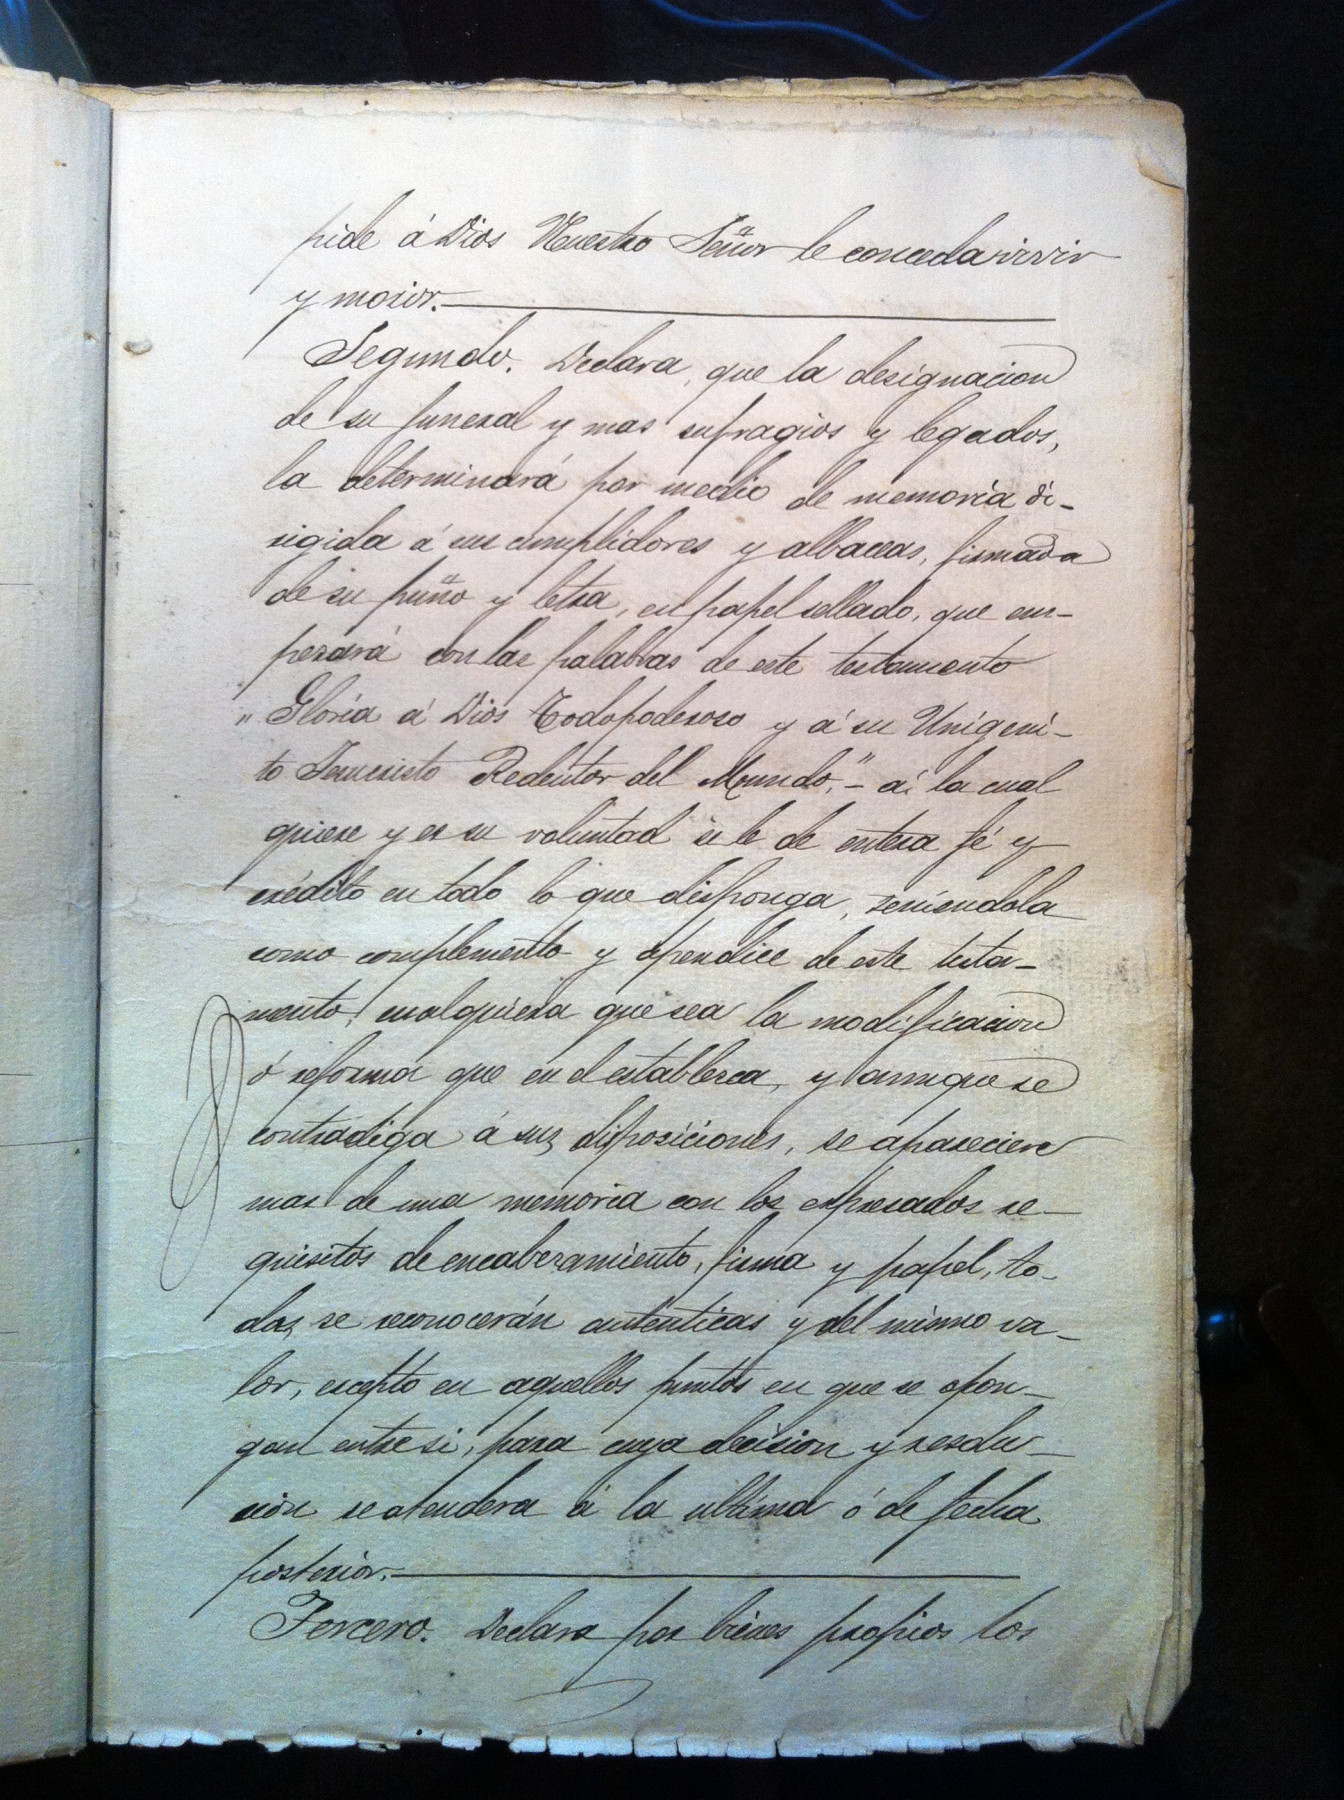 pide á Dios Nuestro Señor le conceda vivir
y morir.
Segundo. Declara, que la designacion
de su funeral y mas sufragios y legados,
la determinará por medio de memoria di-
rigida á sus cumplidores y albaceas, firmada
de su puño y letra, en papel sellado, que em-
pezará con las palabras de este testamento
"Gloria á Dios Todopoderoso y á su Unigeni-
to Jesucristo Redentor del Mundo,"- á la cual
quiere y es su voluntad se le de entera fé y
crédito en todo lo que disponga, teniendola
como complemento y apendice de este testa-
mento, cualquiera que sea la modificacion
ó reforma que en el establezca, y aunque se
contradiga á sus disposiciones, se apareciere
mas de una memoria con los espresados re-
quisitos de encabezamiento, firma y papel, to-
das se reconocerán autenticas y del mismo va-
lor, escepto en aquellos puntos en que se opon-
gan entre si, para cuya decision y resolu-
ción se atendera á la ultima ó de fecha
posterior.
Tercero. Declara por bienes propios los